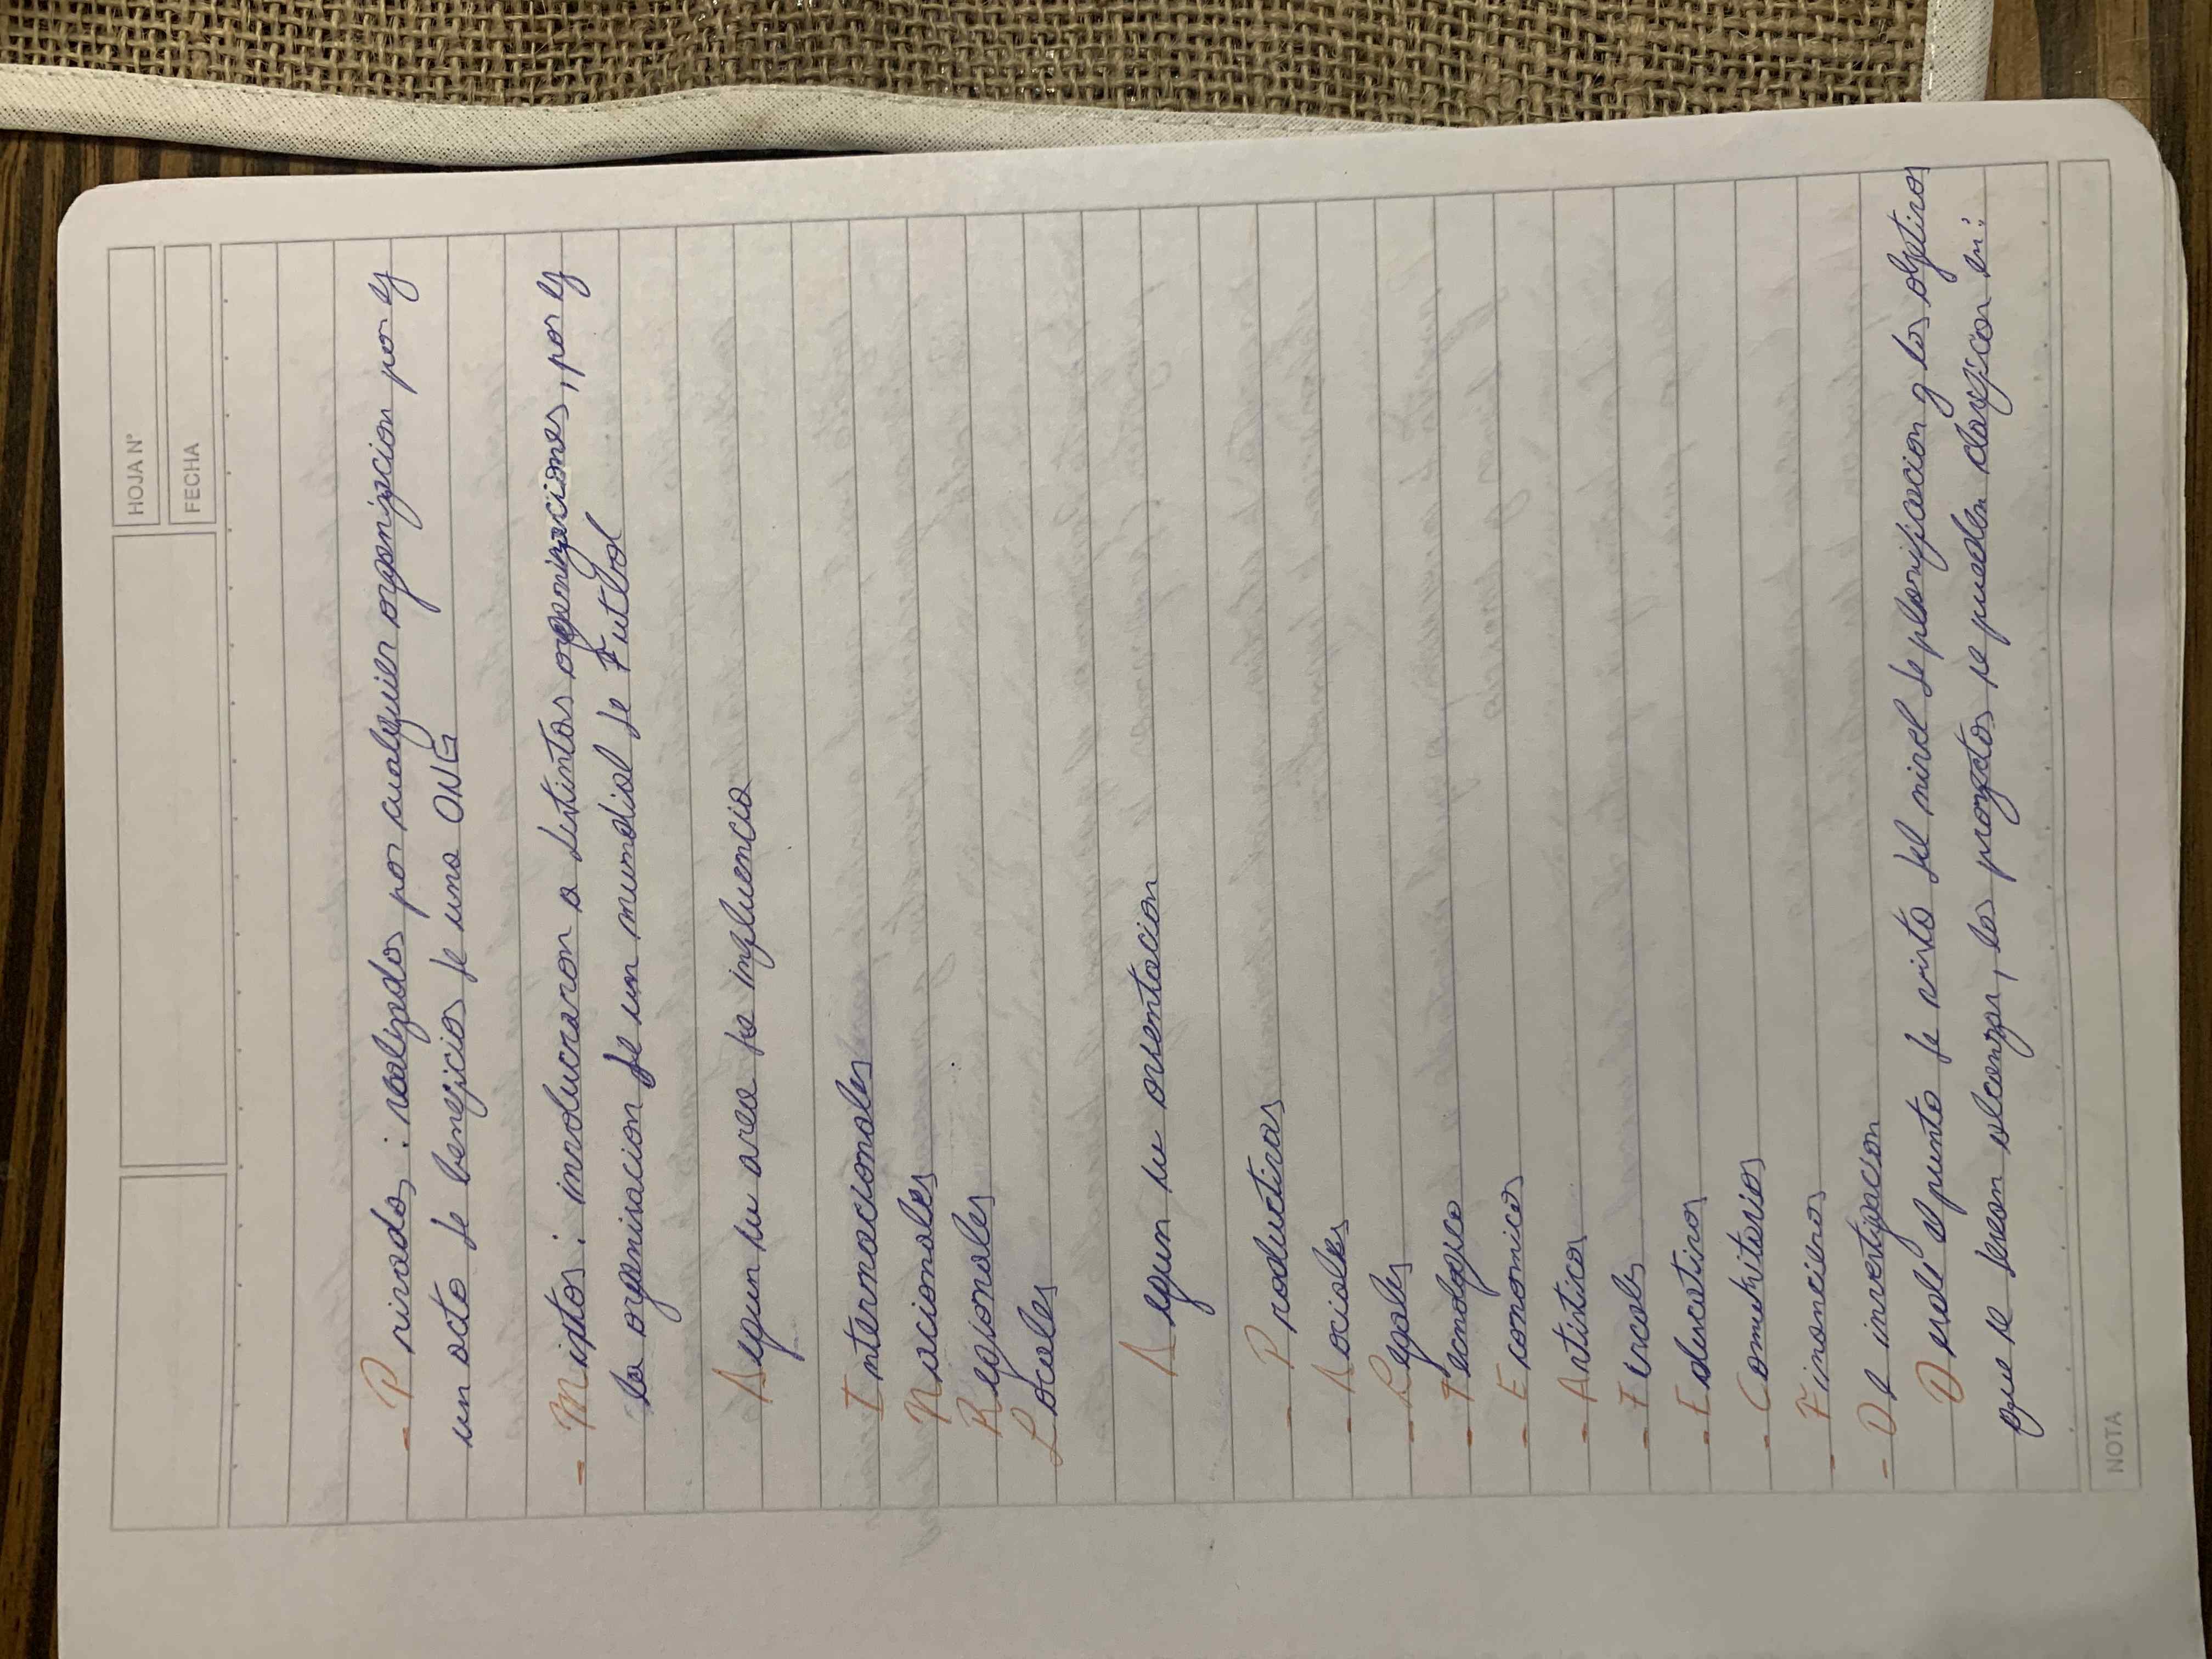 HOJA N°
FECHA
- Privados: realizados por cualquier organizacion por ej
un acto de beneficios de una ONG
- Mixtos: involucraron a distintas organizaciones, por ej
la organizacion de un mundial de Futbol
Segun su area de influencia
Internacionales
Nacionales
Regionales
Locales
Segun su orientacion
- Productivos
- Sociales
- Legales
- Tecnologico
- Economicos
- Artisticos
- Fiscales
- Educativos
- Comunitarios
- Financieros
- De investigacion
Desde el punto de vista del nivel de planificacion y los objetivos
que se desean alcanzar, los proyectos se pueden clasificar en:
NOTA